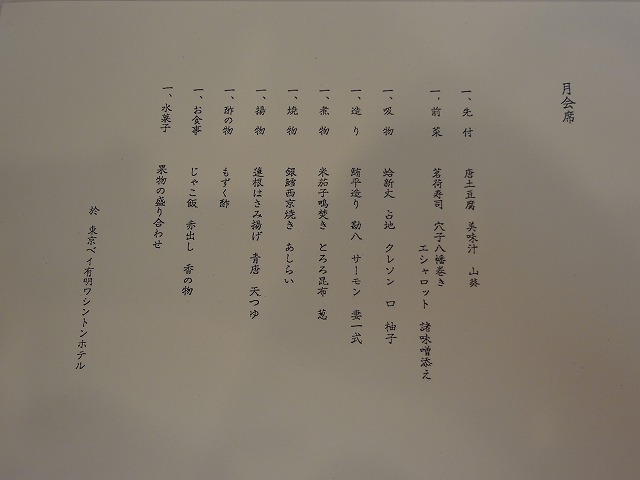 月会席
一、先付 唐土豆腐 美味汁 山葵
一、前菜 茗荷寿司 穴子八幡巻き
エシャロット 諸味噌添え
一、吸物 蛤新丈 占地 クレソン 口 柚子
一、造り 鮪平造り 勘八 サーモン 妻一式
一、煮物 米茄子鴫焚き とろろ昆布 葱
一、焼物 銀鱈西京焼き あしらい
一、揚物 蓮根はさみ揚げ 青唐 天つゆ
一、酢の物 もずく酢
一、お食事 じゃこ飯 赤出し 香の物
一、水菓子 果物の盛り合わせ
於 東京ベイ有明ワシントンホテル